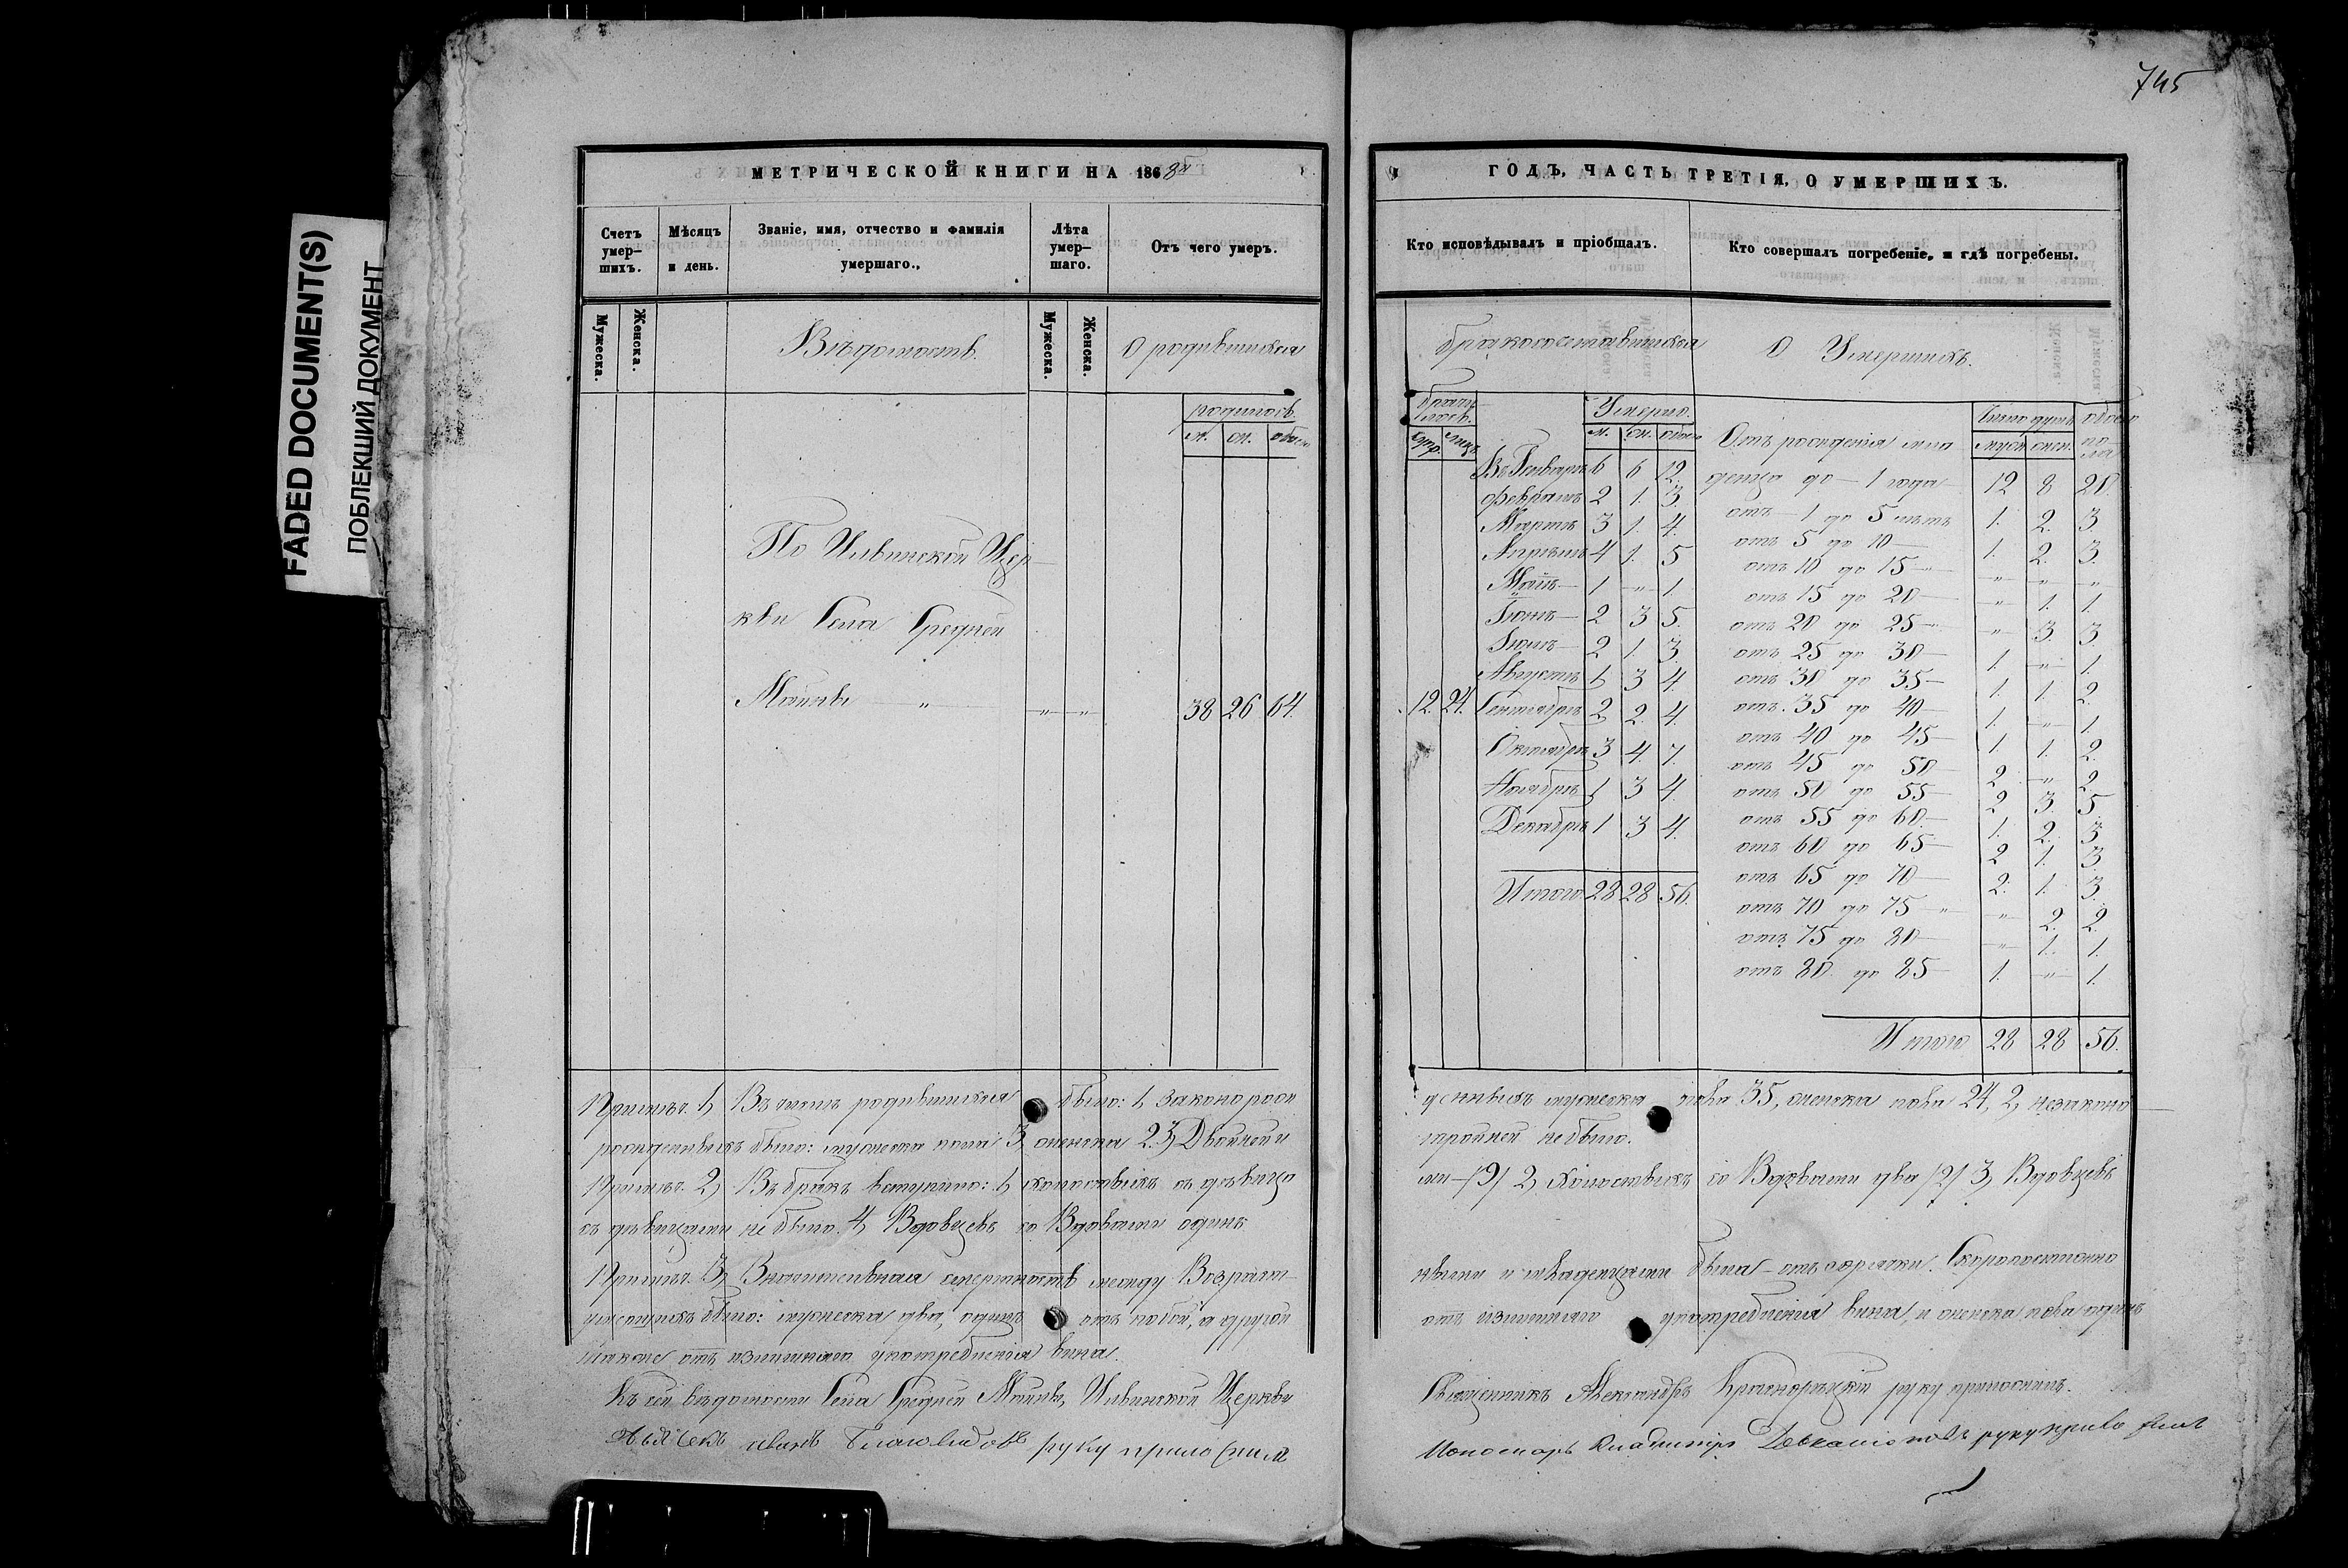 745
FADED DOCUMENT(S)
ПОБЛЕКШИЙ ДОКУМЕНТ
МЕТРИЧЕСКОЙ КНИГИ НА 1868й
Счетъ умер-шихъ.
Мѣсяцъ и день.
Званіе, имя, отчество и фамилія умершаго.
Лѣта умер-шаго.
Отъ чего умеръ.
Мужеска.
Женска.
Вѣдомость
Мужеска.
Женска.
О родившихся
родилось
м. ж. обоего
По Ильинской Цер-
кви Села Средней
Маинъ — „ — „ — „ 38 26 64.
Примѣч. 1, Въ числѣ родившихся было: 1, законорож
рожденныхъ было: мужеска пола 3, женска 2. 3, Двойней и
Примѣч. 2, Въ бракъ вступило: 1, холостыхъ съ дѣвица
съ дѣвицами не было. 4, Вдовцевъ со Вдовами одинъ
Примѣч. 3, Значительная смертность между Возраст-
умершихъ было: мужеска два, одинъ отъ побой, а другой
также отъ излишняго употребленія вина.
Къ сей вѣдомости Села Средней Маинъ, Ильинской Церкви
руку приложил
ГОДЪ, ЧАСТЬ ТРЕТІЯ, О УМЕРШИХЪ.
Кто исповѣдывалъ и пріобщалъ.
Кто совершалъ погребеніе, и гдѣ погребены.
бракосочетавшихся
О Умершихъ.
Умерло.
м. ж. обоего
Въ Январѣ 6 6 12.
Февралѣ 2 1. 3.
Мартѣ 3 1. 4.
Апрѣлѣ 4 1. 5
Маѣ 1 „ 1
Іюнѣ 2 3 5.
Іюлѣ 2 1. 3.
Августѣ 1, 3 4.
12. 24. Сентябрѣ 2 2. 4.
Октябрѣ 3 4. 7.
Ноябрѣ 1 3 4.
Декабрѣ 1 3 4.
Итого 28 28 56.
Отъ рожденія мла
денца до 1 года 12 8 20
отъ 1 до 5 лѣтъ 1. 2. 3.
отъ 5 до 10 1. 2. 3.
отъ 10 до 15 „ „ „
отъ 15 до 20 „ 1. 1.
отъ 20 до 25 „ 3. 3
отъ 25 до 30 1. „ 1.
отъ 30 до 35 1. 1. 2.
отъ 35 до 40 1. „ 1.
отъ 40 до 45 1 1. 2.
отъ 45 до 50 2 „ 2
отъ 50 до 55 2 3. 5.
отъ 55 до 60 1. 2. 3
отъ 60 до 65 2 1. 3
отъ 65 до 70 2. 1. 3.
отъ 70 до 75 „ 2. 2.
отъ 75 до 80 „ 1. 1.
отъ 80 до 85 1. „ 1.
Итого 28 28 56.
денныхъ мужеска пола 35, женска пола 24, 2, незаконо
тройней не было.
ми /9/ 2, Холостыхъ со Вдовами два /2/ 3, Вдовцевъ
ными и младенцами была отъ горячки. Скоропостижно
отъ излишняго употребленія вина, и женска пола одинъ
Священникъ Александръ руку приложилъ.
Пономарь Владиміръ руку приложилъ